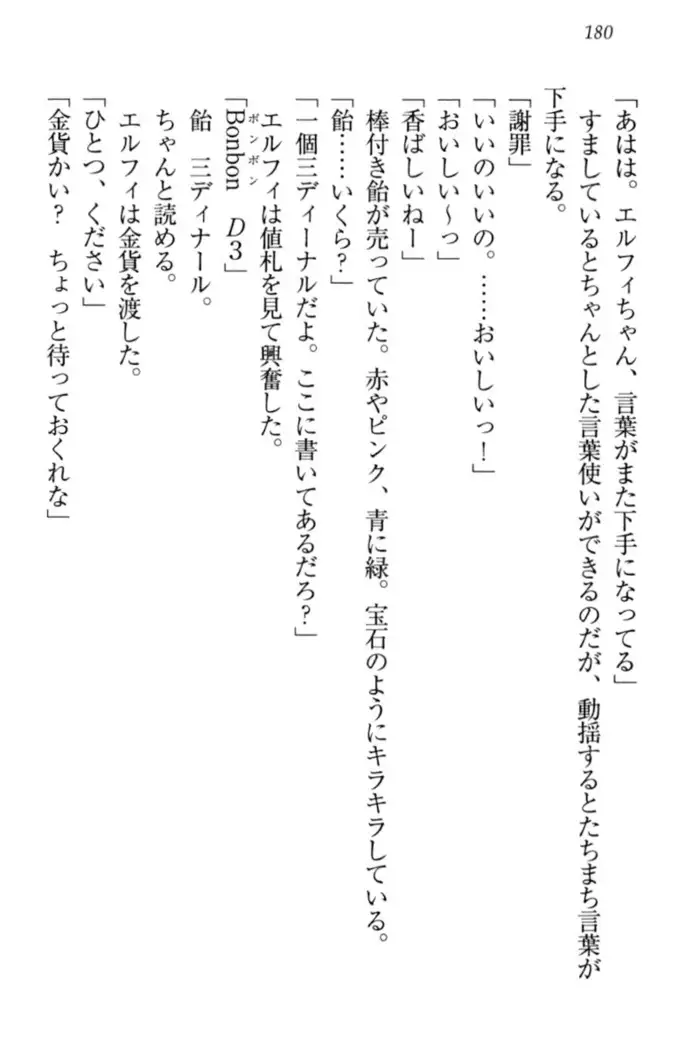 180
「あはは。エルフィちゃん、言葉がまた下手になってる」
すましているとちゃんとした言葉使いができるのだが、動揺するとたちまち言葉が
下手になる。
「謝罪」
「いいのいいの。……おいしいっ！」
「おいしい～っ」
「香ばしいねー」
棒付き飴が売っていた。赤やピンク、青に緑。宝石のようにキラキラしている。
「飴……いくら？」
「一個三ディーナルだよ。ここに書いてあるだろ？」
エルフィは値札を見て興奮した。
ボンボン
「Bonbon　D3」
飴　三ディナール。
ちゃんと読める。
エルフィは金貨を渡した。
「ひとつ、ください」
「金貨かい？　ちょっと待っておくれな」